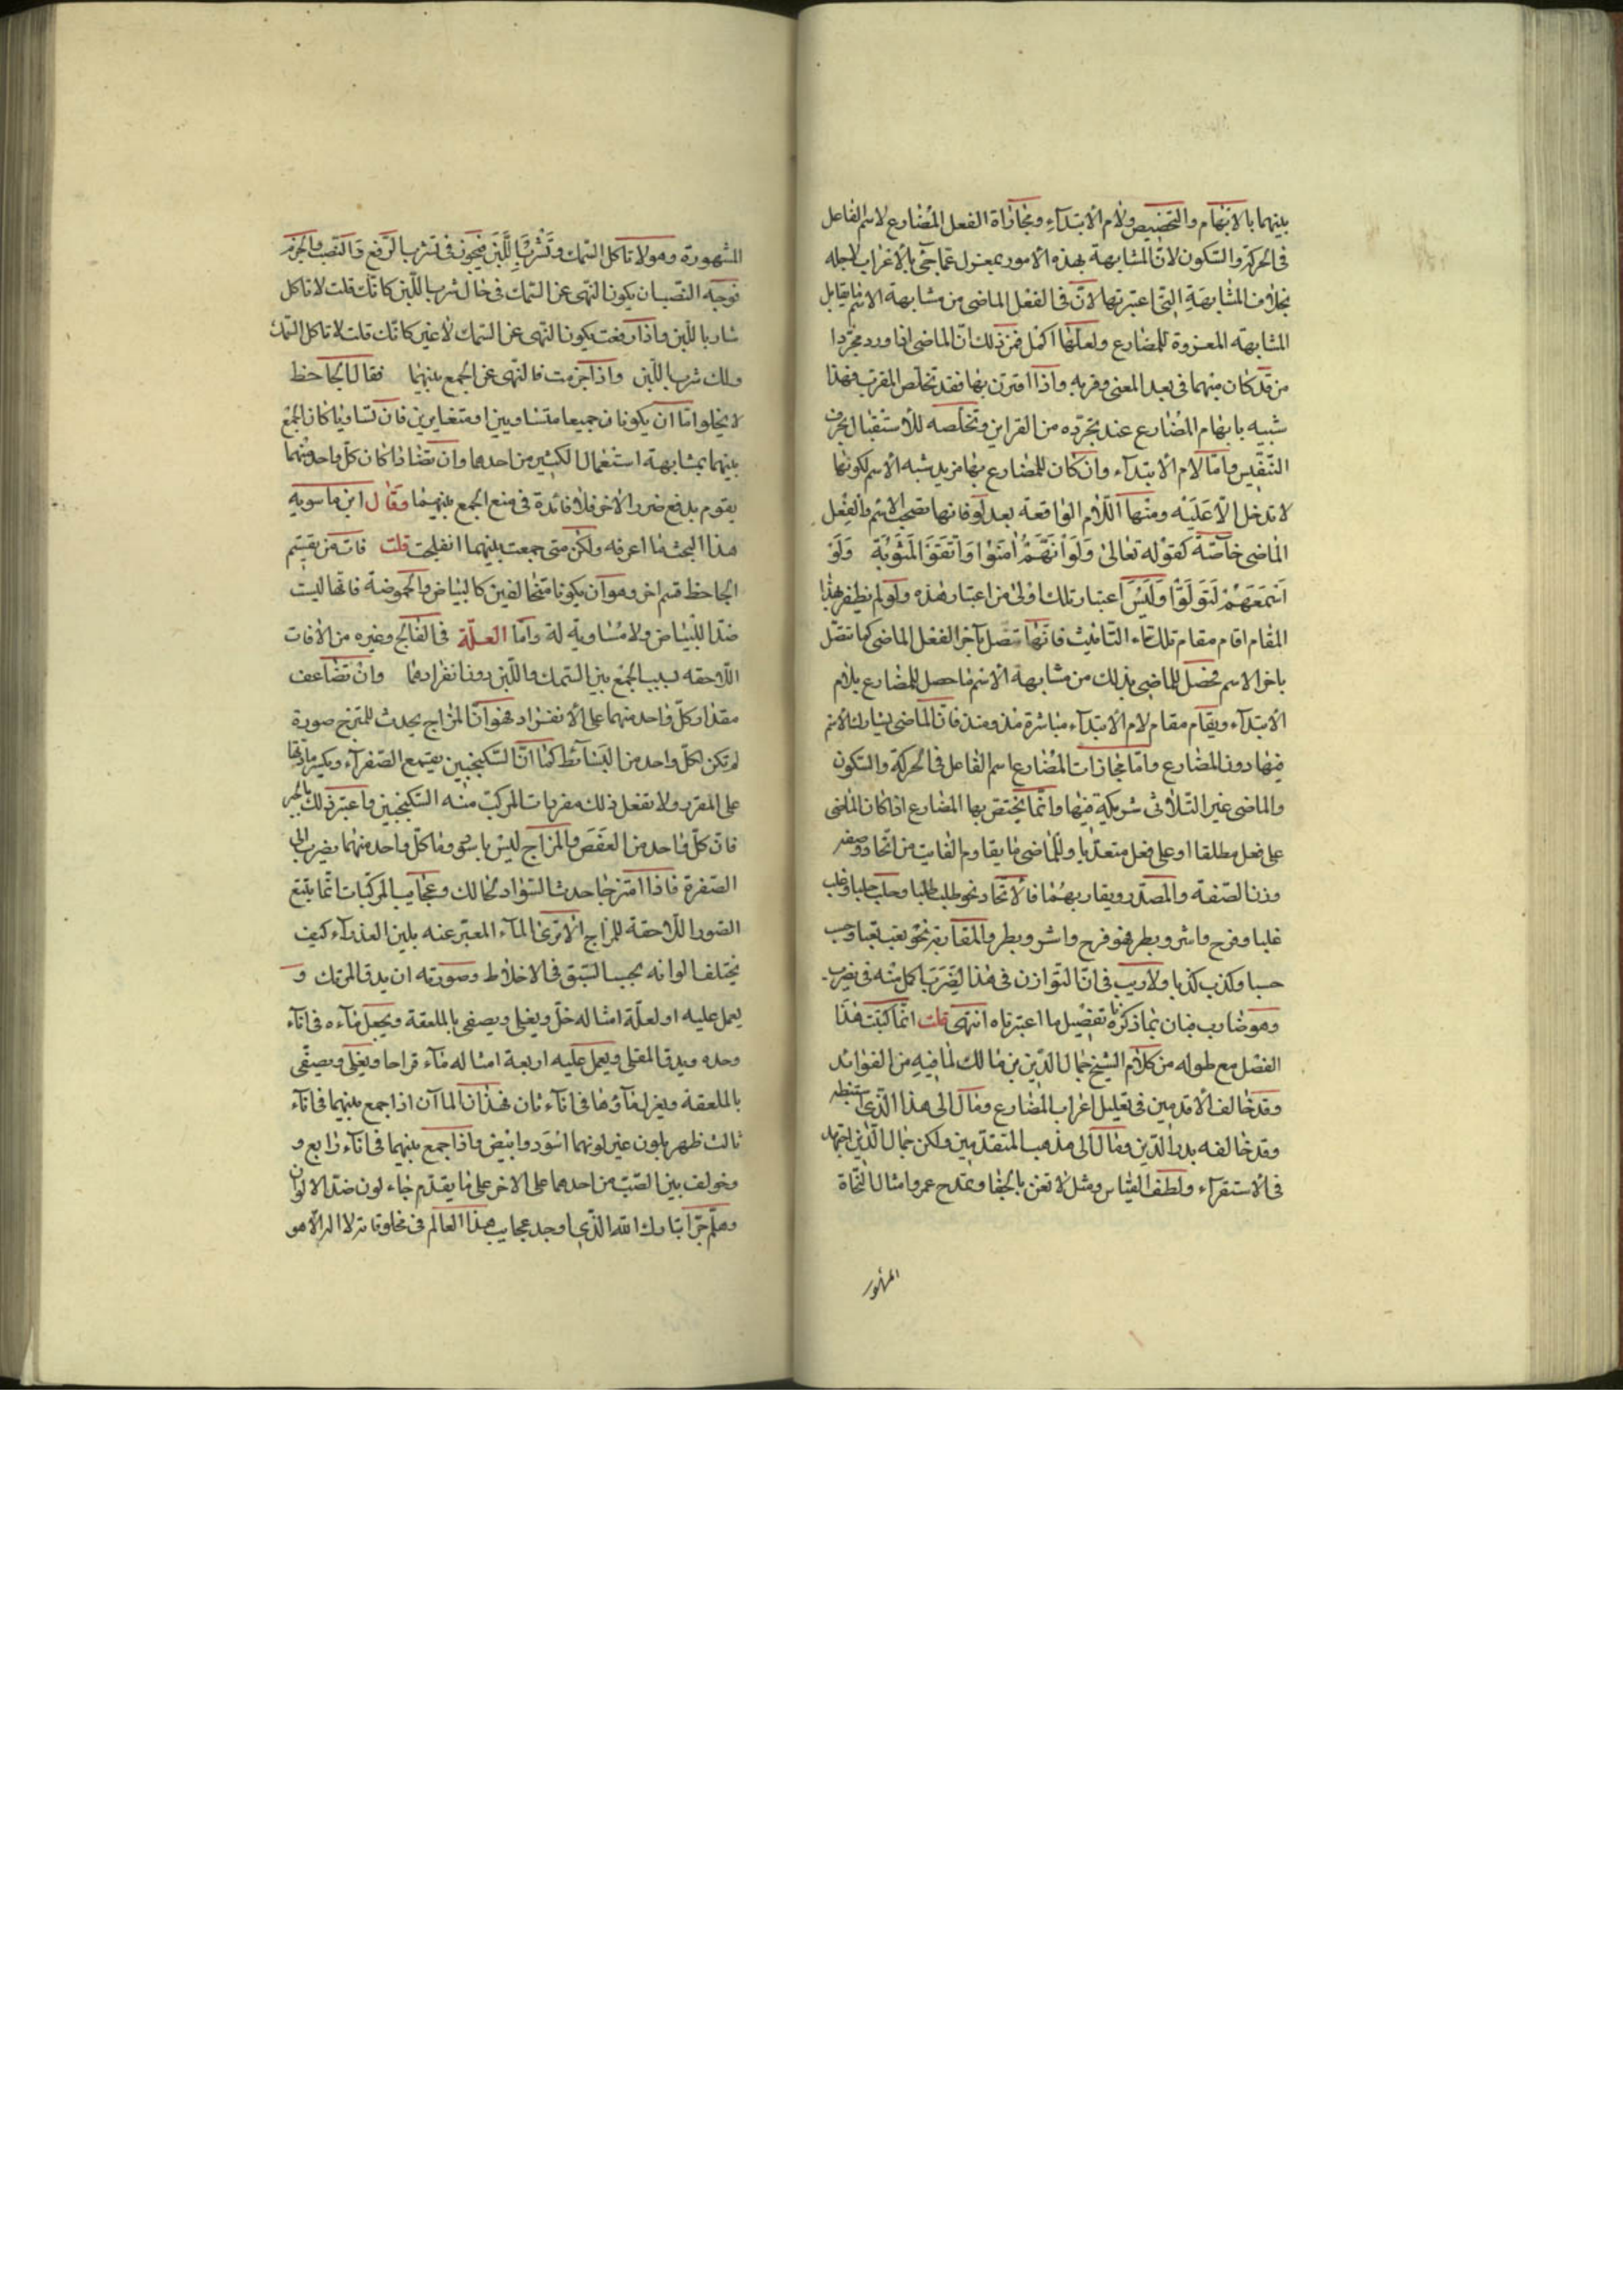 بينهما بالابهام والتخصيص ولام الابتدآء ومجازاة الفعل المضارع لاسم الفاعل
فى الحركة والسكون لان المشابهة بهذه الامور بمعزل عما جئ بالاعراب لاجله
بخلاف المشابهة التى اعتبرتها لان فى الفعل الماضى من مشابهة الاسم ما يقابل
المشابهة المعزوة للمضارع ولعلها اكمل فمن ذلك ان الماضى اذا ورد مجردا
من قد كان منهما فى بعد المعنى وقربه واذا اقترن بها فقد تخلص المقرب فهذا
شبيه بابهام المضارع عند تجرده من القراين وتخلصه للاستقبال بحرف
التنفيس واما لام الابتدآء وان كان للمضارع بها مزيد شبه الاسم لكونها
لا تدخل الا عليه ومنها اللام الواقعة بعد لو فانها تصحب الاسم والفعل
الماضى خاصة كقوله تعالى وَلَوْ اَنَّهُمْ اٰمَنُوْا وَاتَّقَوْا لَمَثُوْبَةٌ وَلَوْ
اَسْمَعَهُمْ لَتَوَلَّوْا وليس اعتبار تلك اولى من اعتبار هذه ولو لم يظفر بهذا
المقام اقام مقام تلك تاء التانيث فانها تتصل بآخر الفعل الماضى كما تتصل
باخر الاسم فحصل للماضى بذلك من مشابهة الاسم ما حصل للمضارع بلام
الابتدآء ويقام مقام لام الابتدآء مباشرة مذ ومنذ فان الماضى يشارك الاسم
فيها دون المضارع واما مجازات المضارع اسم الفاعل فى الحركة والسكون
والماضى غير الثلاثى شريكه فيها وانما يختص بها المضارع اذا كان الماضى
على فعل مطلقا او على فعل متعديا وللماضى ما يقاوم الفايت من اتحاد وصفه
وزن الصفة والمصدر ويقاربهما فالاتحاد نحو طلب طلبا وحلب حلبا وغلب
غلبا وفرح واشر وبطر فهو فرح واشر وبطر والمقاربة نحو تعب تعبا وحسب
حسبا وكذب كذبا ولا ريب فى ان التوازن فى هذا الضرب اكمل منه فى يضرب
وهو ضارب فبان بما ذكرته تفضيل ما اعتبرناه انتهى قلت انما كتبت هذا
الفصل مع طوله من كلام الشيخ جمال الدين بن مالك لما فيه من الفوائد
وقد خالف الاقدمين فى تعليل اعراب المضارع ومال الى هذا الذى استنبطه
وقد خالفه بدر الدين ومال الى مذهب المتقدمين ولكن جمال الدين اجتهد
فى الاستقرآء ولطف القياس ومثل لا تعن بالجفا وتمدح عمرو امثال النحاة
المشهور
المشهورة وهو لا تاكل السمك وتَشْرَب اللَّبَن فيجوز فى تشرب الرفع والنصب والجزم
توجيه النصب ان يكون النهى عن السمك فى حال شرب اللبن كانك قلت لا تاكل
شارب اللبن واذا رفعت يكون النهى عن السمك لا غير كانك قلت لا تاكل السمك
ولك شرب اللبن واذا جزمت فالنهى عن الجمع بينهما فقال الجاحظ
لا يخلو اما ان يكونا جميعا متساويين او متغايرين فان تساويا كان الجمع
بينهما بمشابهة استعمال الكثير من احدهما وان تضادا كان كل واحد منهما
يقوم بدفع ضرر الاخر فلا فائدة فى منع الجمع بينهما وقال ابن ماسويه
هذا البحث ما اعرفه ولكن متى جمعت بينهما انفلجت قلت فاته من تقسيم
الجاحظ قسم اخر وهو ان يكونا متخالفين كالبياض والحموضة فانها ليست
ضدا للبياض ولا مساوية له واما العلة فى الفالج وغيره من الافات
اللاحقه لسبب الجمع بين السمك واللبن دون انفرادهما وان تضاعف
مقدار كل واحد منهما على الانفراد فهو ان المزاج يحدث للممتزج صورة
لم تكن لكل واحد من البسائط كما ان السكنجبين يقمع الصفرآء ويكسر مادتها
على المفرد ولا تفعل ذلك مفردات المركب منه السكنجبين واعتبر ذلك بالحبر
فان كل واحد من العفص والزاج ليس باسود وماء كل واحد منهما يضرب الى
الصفرة فاذا امتزجا حدث السواد الحالك وعجايب المركبات انما يتبع
الصور اللاحقة للمزاج الا ترى الماء المعبر عنه بلبن العذرآء كيف
يختلف الوانه بحسب السبق فى الاخلاط وصورته ان يدق المرتك و
يعمل عليه اربعة امثاله خل ويغلى ويصفى بالملعقة ويجعل مآءه فى انآء
وحده ويدق القلى ويعمل عليه اربعة امثاله مآء قراحا ويغلى ويصفى
بالملعقة ويعزل مآؤها فى انآء ثان فهذان المآان اذا جمع بينهما فى انآء
ثالث ظهر بلون غير لونهما اسود وابيض واذا جمع بينهما فى انآء رابع و
وخولف بين الصب من احدهما على الاخر على ما يقدم جاء لون ضد الالوان
وهلم جرا تبارك الله الذى اوجد عجايب هذا العالم فى مخلوقاته لا اله الا هو